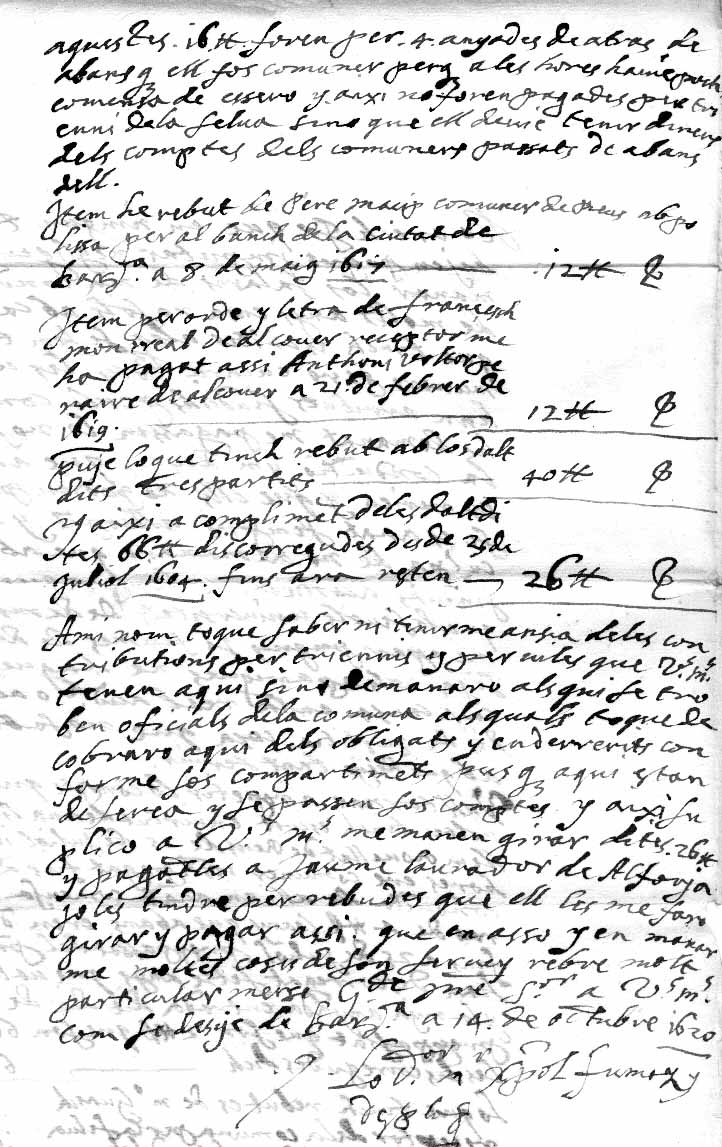 aquestes .16 ℔. foren per .4. anyades de atras de
abans q ell fos comuner perq ales hores havie poch
comensa de essero y axi no foren pagades per tri
enni dela selva sino que ell devie tenir diners
dels comptes dels comuners passats de abans
dell.
Item he rebut de Pere maip comuner de Preus ab po
lissa per al banch de la ciutat de
Barª. a 8 de maig 1617 12 ℔
Item per orde y letra de fransesch
monrreal de alcover receptor me
ha pagat assi Anthoni
raire de alcover a 21 de febrer de
1619. 12 ℔
puje lo que tinch rebut ab los dalt
dits tres partits 40 ℔
y axi a complimēt deles dalt di
tes 66 ℔ discorregudes desde 25 de
Juliol 1604. fins ara resten 26 ℔
Ami nom toque saber ni tenir me ansia deles con
tributions per triennis y per viles que V.s m.s
tenen aqui sino demanaro als qui se tro
ben oficials dela comuna als quals toque de
cobraro aqui dels obligats y enderrerits con
forme sos compartimēts pusq aqui estan
de serca y se passen sos comptes y axi su
plico a V.s m.s me manen girar dites .26 ℔
y pagarles a Jaume laurador de Alforja
jo les tindre per rebudes que ell les me fara
girar y pagar assi. que en asso y en manar
me moltes coses de son servey rebre molt
particular merse G.de nre S.or a V.s m.s
com se desije de Barª. a 14. de octubre 1620
Lo D.or m.r xpol fumas y